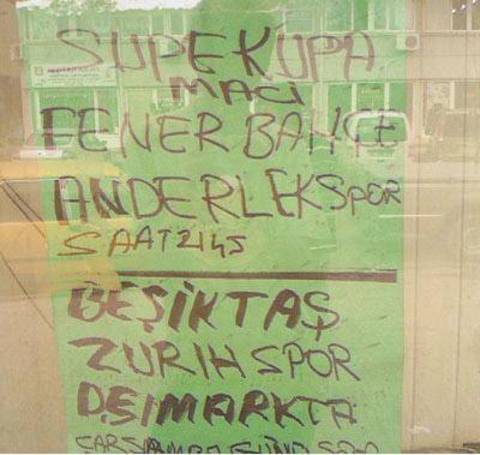 SUPEKUPA
MACI
FENERBAHÇE
ANDERLEKSPOR
SAAT 2145
BEŞİKTAŞ
ZURIHSPOR
DEŞIMARKTA